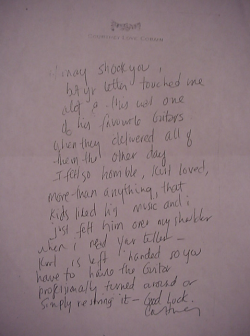 may shock you,
but yr letter touched me
alot & this was one
of his favourite Guitars
when they delivered all of
them the other day
I feel so horrible, Kurt loved,
more than anything, that
kids liked his music and i
just felt him over my shoulder
when i read your letter —
Kurt is left handed so you
have to have the Guitar
professionally turned around or
simply restring it — Good Luck.
Courtney